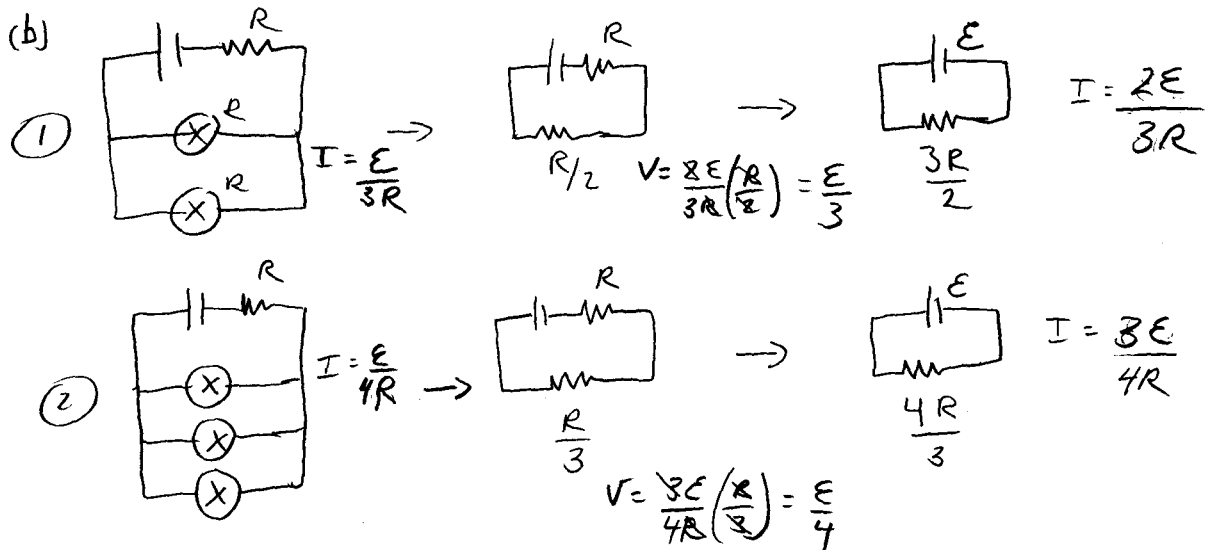 (b)
R
R
ε
1
R
R
I = ε/3R
→
R/2
→
V = 2ε/3R (R/2) = ε/3
3R/2
I = 2ε/3R
R
R
ε
2
I = ε/4R
→
R/3
→
V = 3ε/4R (R/3) = ε/4
4R/3
I = 3ε/4R